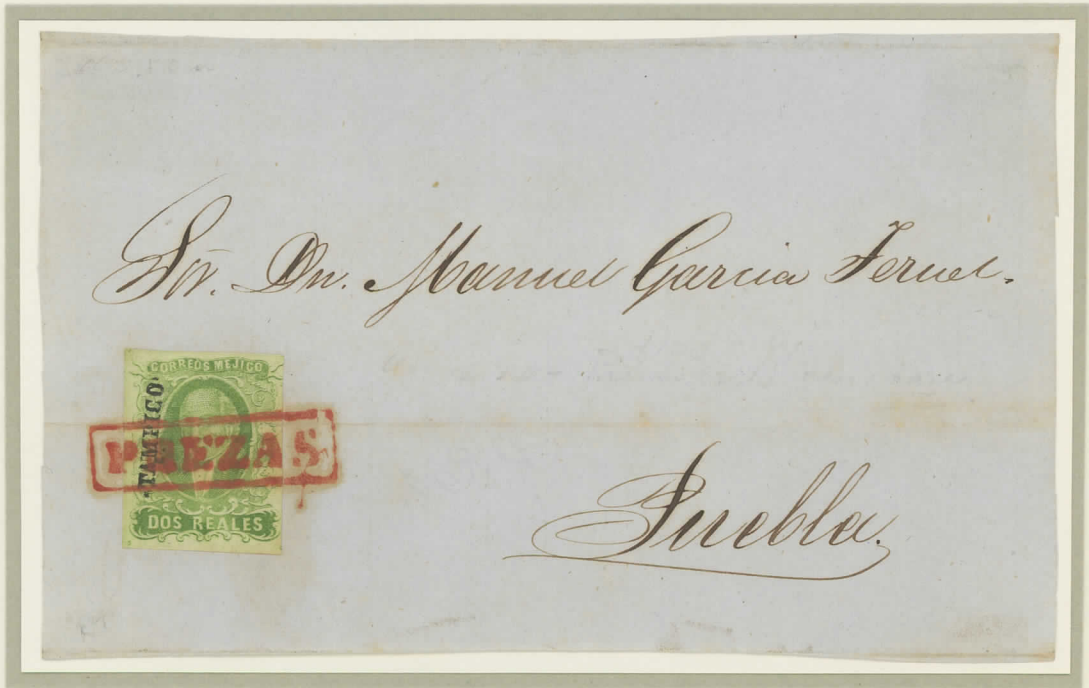 Sor. Dn. Manuel Garcia Teruel.
CORREOS MEJICO
TAMPICO
PREZAS
DOS REALES
Puebla.